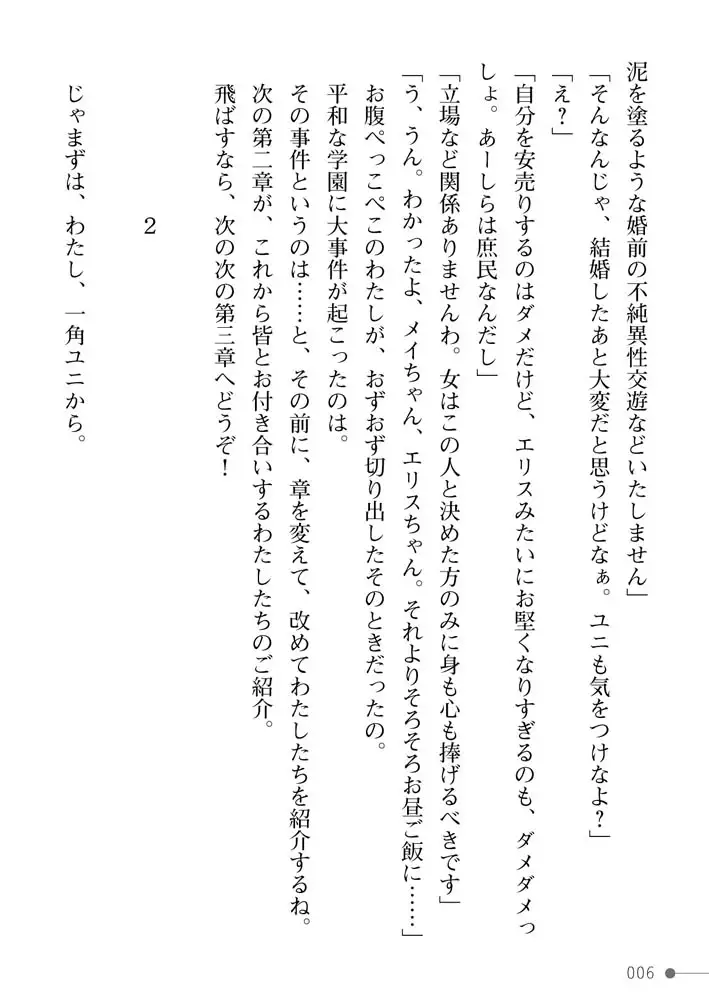 泥を塗るような婚前の不純異性交遊などいたしません」
「そんなんじゃ、結婚したあと大変だと思うけどなぁ。ユニも気をつけなよ?」
「え?」
「自分を安売りするのはダメだけど、エリスみたいにお堅くなりすぎるのも、ダメダメっ
しょ。あーしらは庶民なんだし」
「立場など関係ありませんわ。女はこの人と決めた方のみに身も心も捧げるべきです」
「う、うん。わかったよ、メイちゃん、エリスちゃん。それよりそろそろお昼ご飯に……」
お腹ぺっこぺこのわたしが、おずおず切り出したそのときだったの。
平和な学園に大事件が起こったのは。
その事件というのは……と、その前に、章を変えて、改めてわたしたちを紹介するね。
次の第二章が、これから皆とお付き合いするわたしたちのご紹介。
飛ばすなら、次の次の第三章へどうぞ!
2
じゃまずは、わたし、一角ユニから。
006